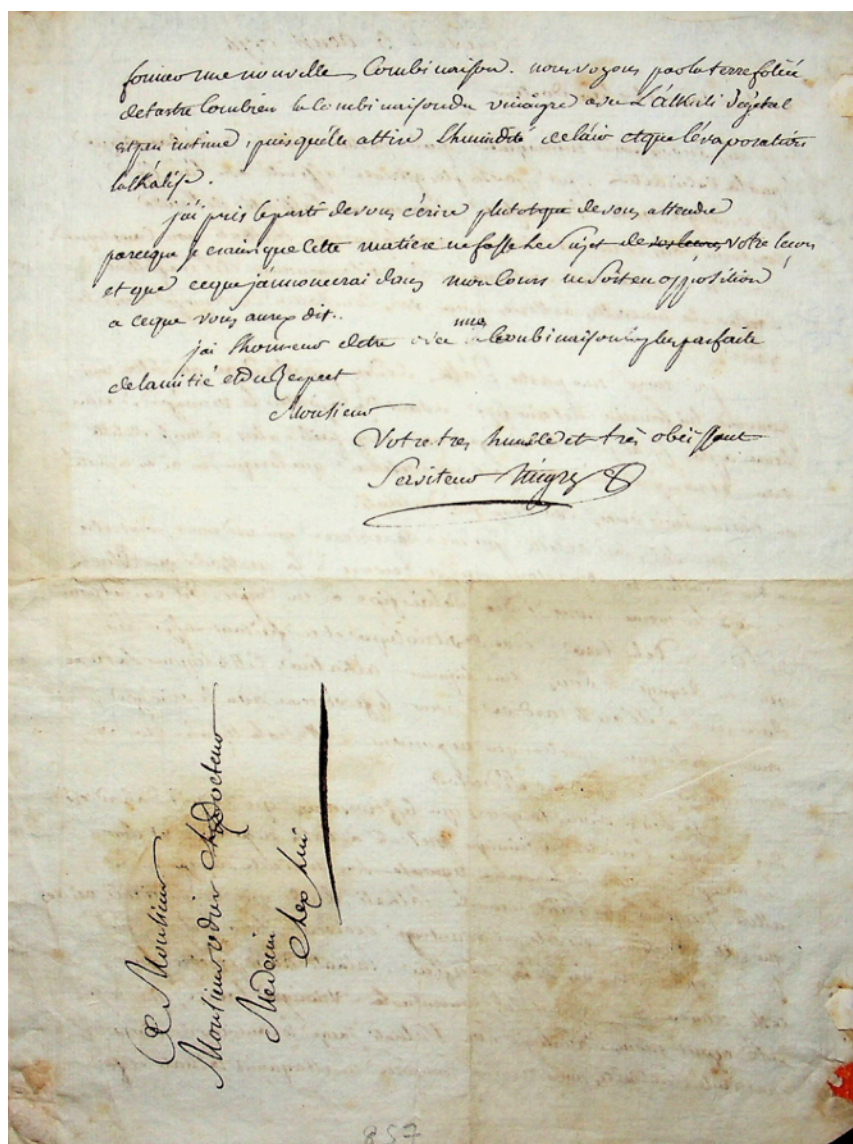 former une nouvelle Combinaison. nous voyons par la terre foliée
de tartre Combien la Combinaison du vinaigre avec L'alkali végétal
est peu intime, puisqu'elle attire l'humidité de lair et que lévaporation
lalkalise.
jai pris le parti de vous écrire plutot que de vous attendre
parceque je crains que Cette matière ne fasse le Sujet de votre lecon
et que ceque jannoncerai dans mon Cours ne Soit en opposition
a ceque vous aurez dit..
jai lhonneur detre avec une Combinaison la plus parfaite
de lamitié et du Respect
Monsieur
Votre tres humble et très obéissant
Serviteur Tingry
A Monsieur
Monsieur odier Docteur
Medecin
Chez lui
857